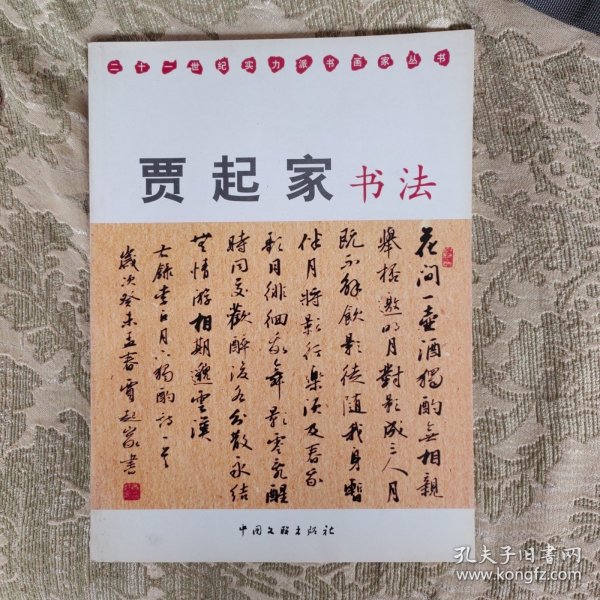 二十一世纪实力派书画家丛书
贾起家书法
花间一壶酒獨酌无相親
舉杯邀明月對影成三人月
既不解飲影徒随我身暫
伴月將影行樂須及春我
歌月徘徊我舞影零亂醒
時同交歡醉後各分散永結
無情游相期邈雲漢
右錄李白月下獨酌詩一首
歲次癸未孟春賈起家書
中国文联出版社
孔夫子旧书网
www.kongfz.com